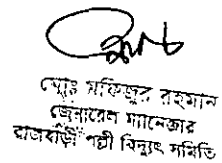 মোঃ মফিজুর রহমান
জেনারেল ম্যানেজার
রাজবাড়ী পল্লী বিদ্যুৎ সমিতি